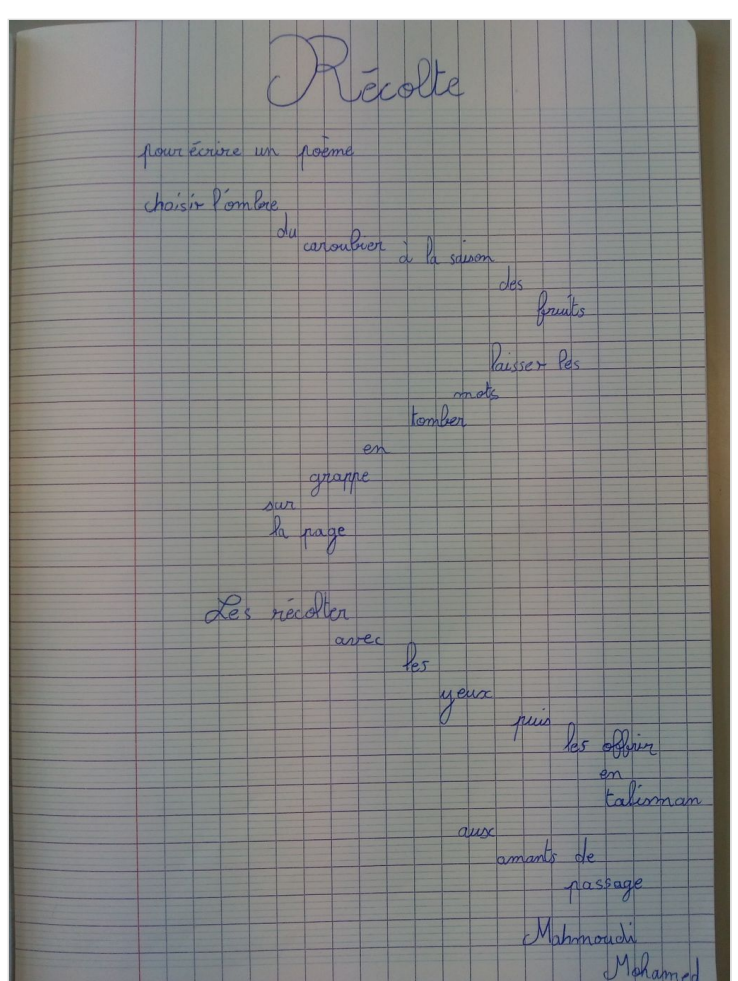 Récolte
pour écrire un poème
choisir l'ombre
du
caroubier à la saison
des
fruits
laisser les
mots
tomber
en
grappe
sur
la page
Les récolter
avec
les
yeux
puis
les offrir
en
talisman
aux
amants de
passage
Mahmoudi
Mohamed